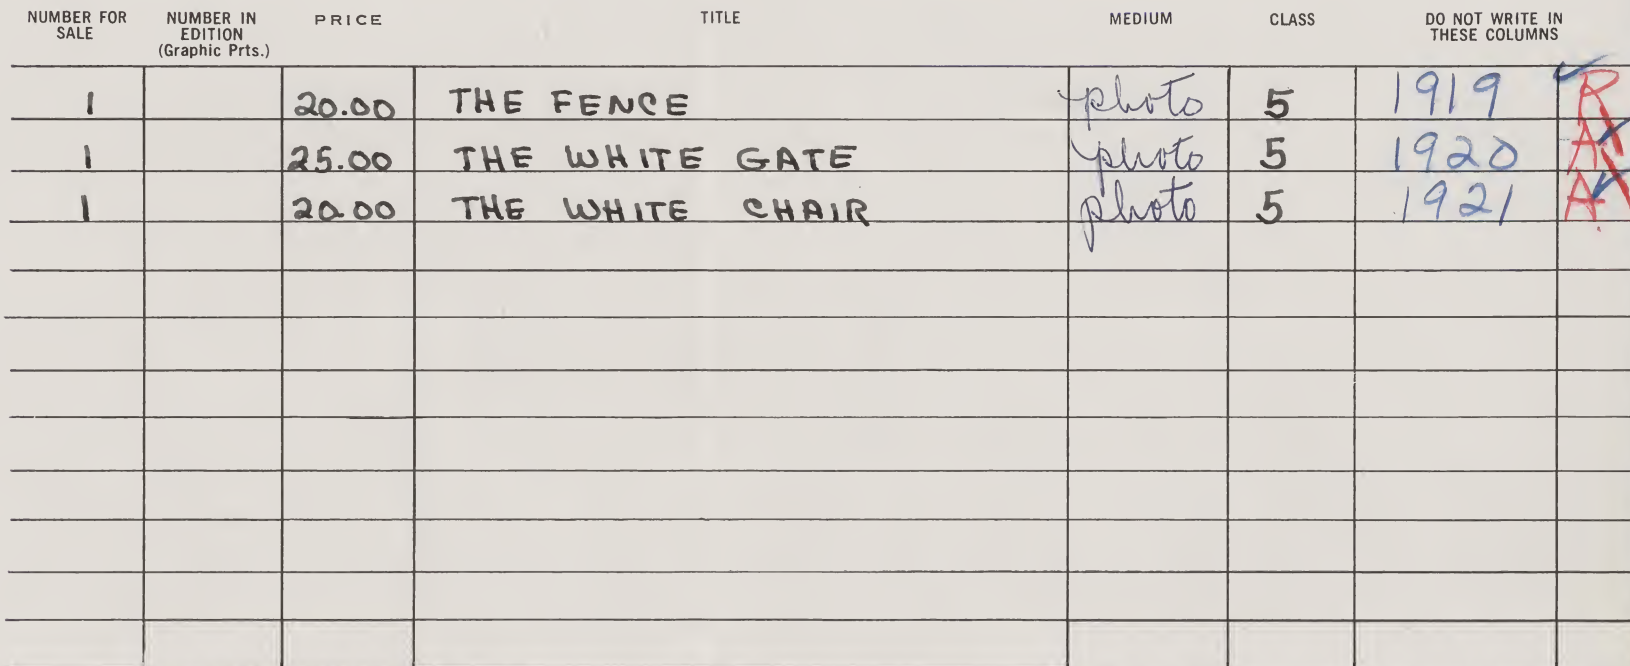 NUMBER FOR SALE NUMBER IN EDITION (Graphic Prts.) PRICE TITLE MEDIUM CLASS DO NOT WRITE IN THESE COLUMNS
1 20.00 THE FENCE photo 5 1919 R
1 25.00 THE WHITE GATE photo 5 1920 A
1 20.00 THE WHITE CHAIR photo 5 1921 A